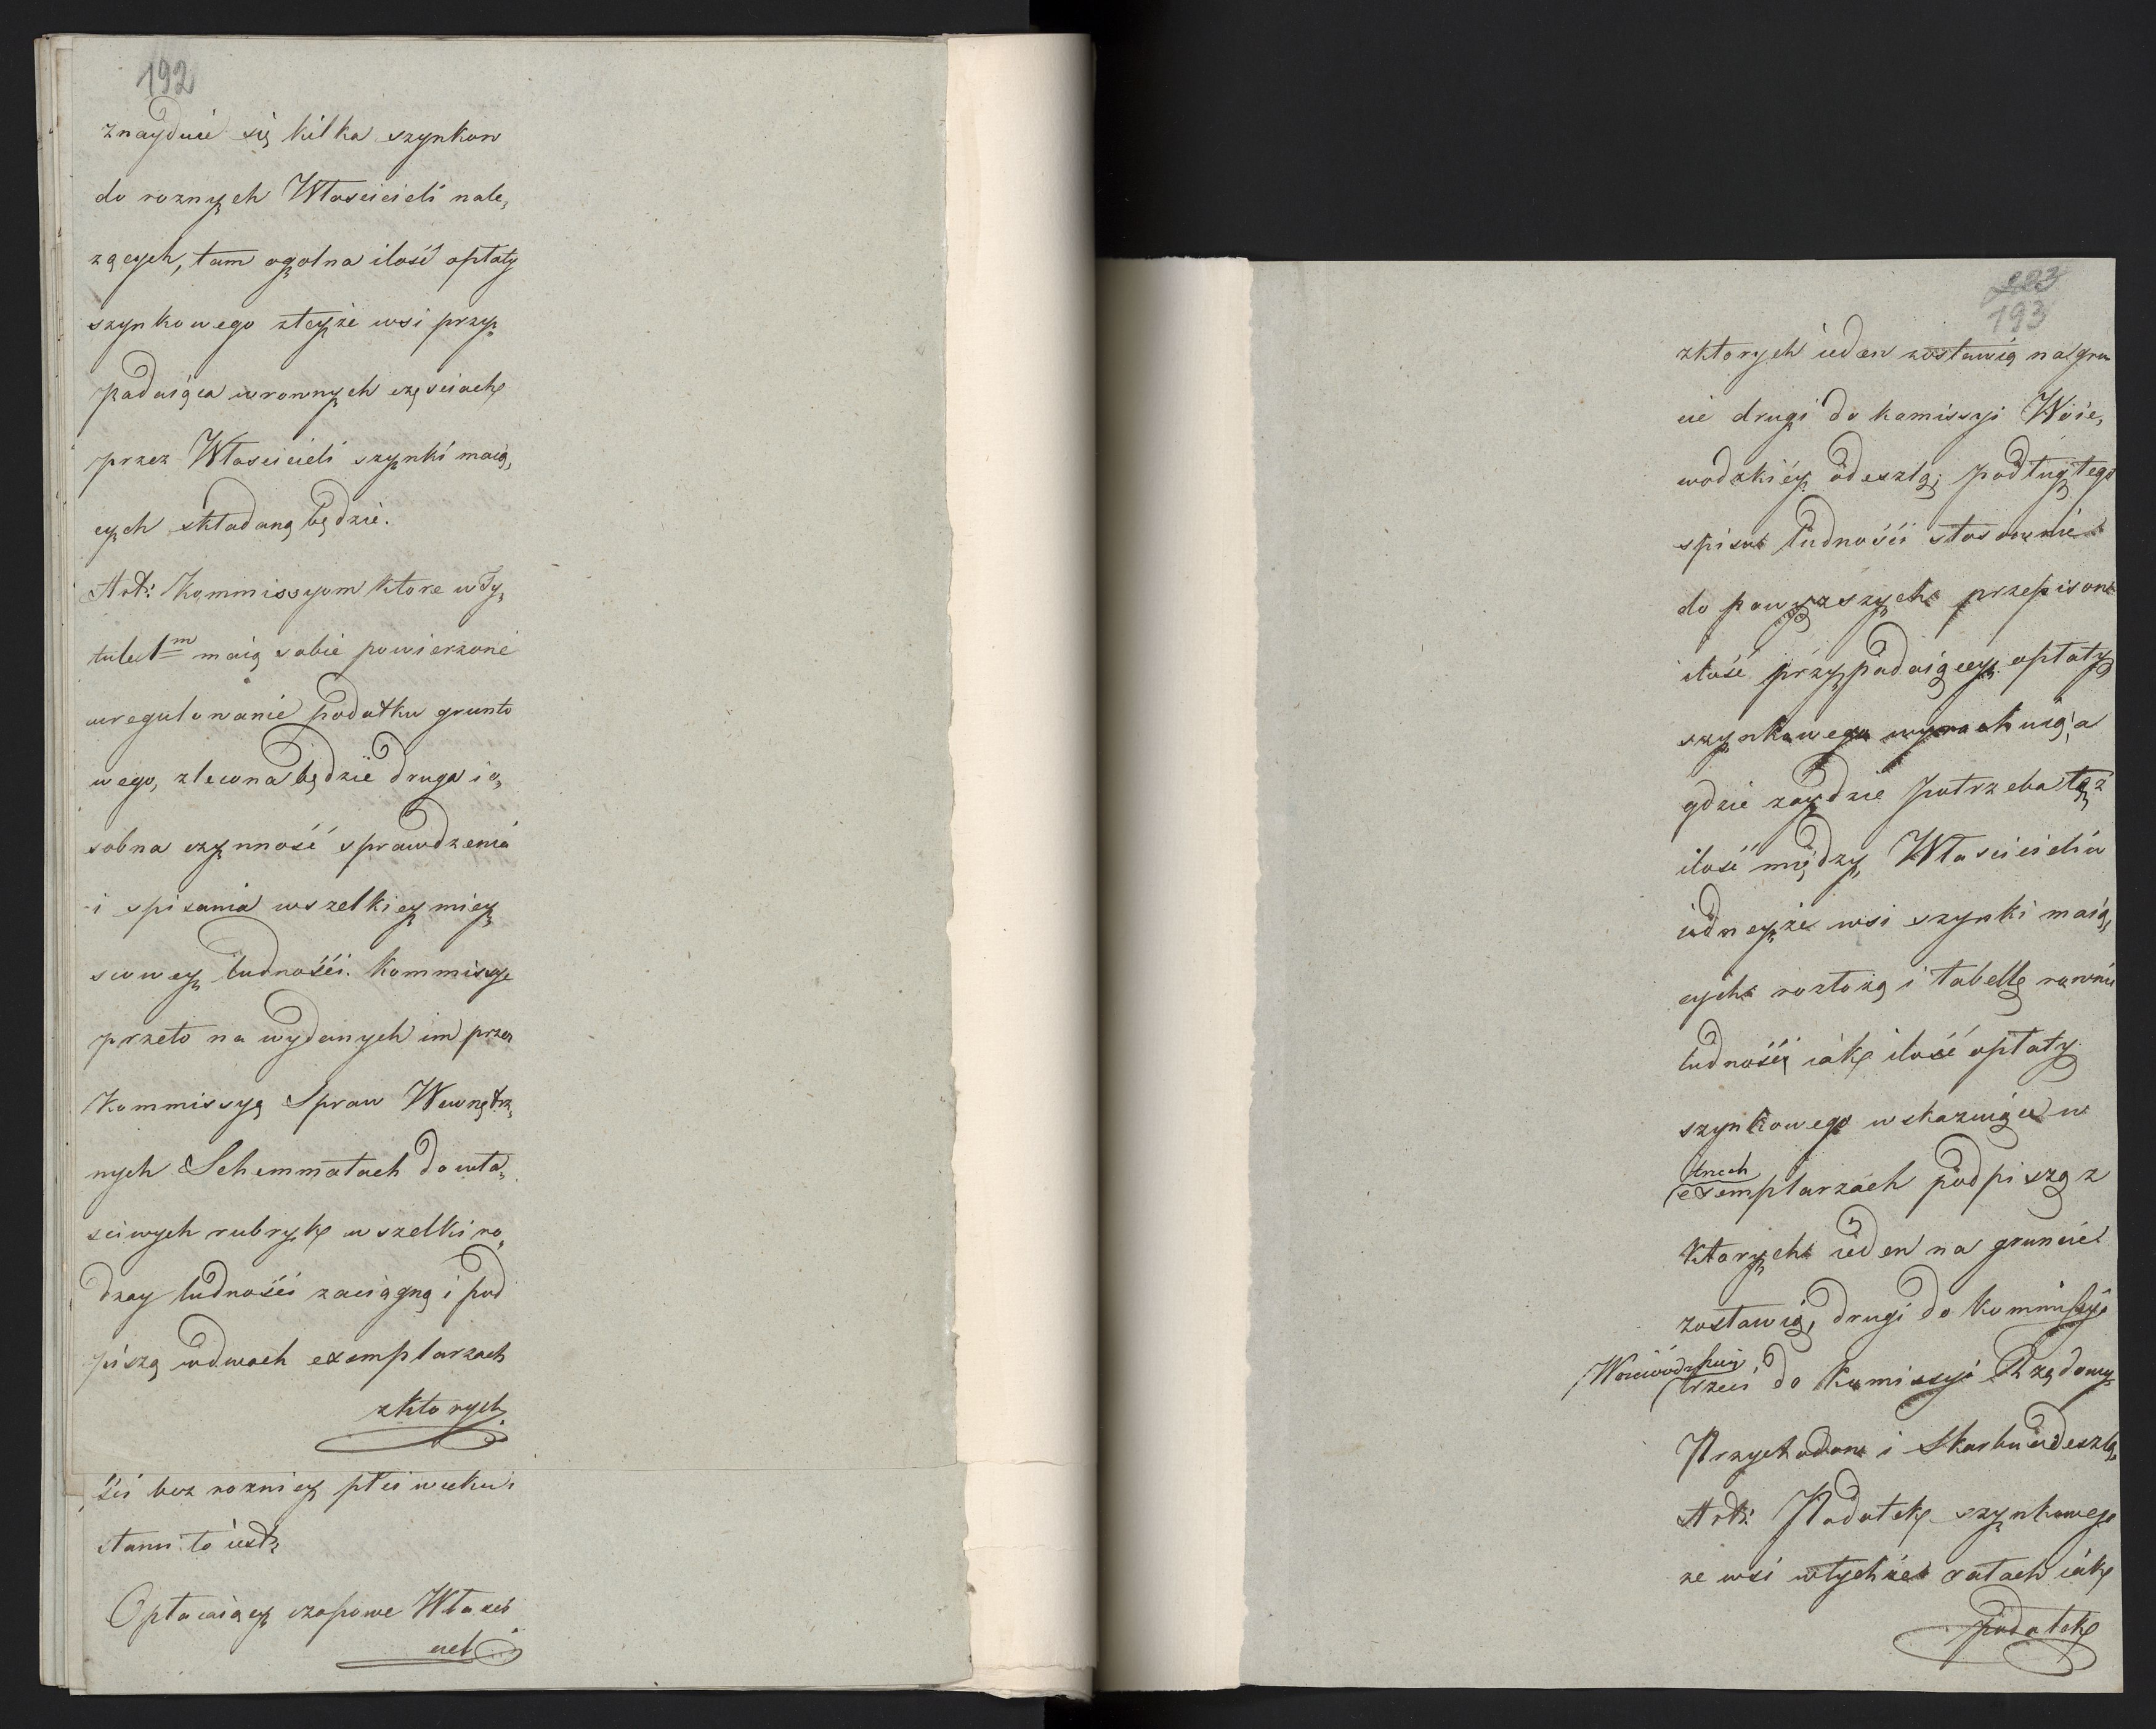 192
znayduie się kilka szynkow
do roznych Własicieli nale,
zących, tam ogolna ilość opłaty
szynkowego zteyże wsi przy,
padaiąca wrownych częsciach
przez Własicieli szynki maią,
cych składaną będzie.
Art: Kommissyom ktore w Ty,
tule 1m maią sobie powierzone
uregulowanie podatku grunto
wego, zlecona będzie druga i o,
sobna czynność sprawdzenia
i spisania wszelkiey miey,
scowey ludności. Kommissye
przeto na wydanych im przez
Kommissyą Spraw Wewnętrz,
nych Schemmatach do wła,
sciwych rubryk wszelki ro,
dzay ludności zaciągną i pod
piszą wdwoch exemplarzach
zktorych
ści bez rozniey płci wieku i
stanu to iest:
Opłacaiący czopowe Własci
ciel
203
193
zktorych ieden zostawią na grun
cie drugi do komissyi Woie,
wodzkiey odeszlą; podług tego
spisu ludności stosownie
do powyzszych przepisow
ilość przypadaiącey opłaty
szynkowego wyrachuią, a
gdzie zaydzie potrzeba tęż
ilość między Własicielów
iedneyże wsi szynki maią,
cych rozłożą i tabellę rownie
ludności iak ilość opłaty
szynkowego wskazuiące w
trzech
exemplarzach podpiszą z
ktorych ieden na gruncie
zostawią, drugi do Kommissyi
Woiewodzkiey,
trzeci do Komissyi Rządowey
Przychodow i Skarbu odeszlą.
Art: Podatek szynkowego
ze wsi wtychże ratach iak
podatek